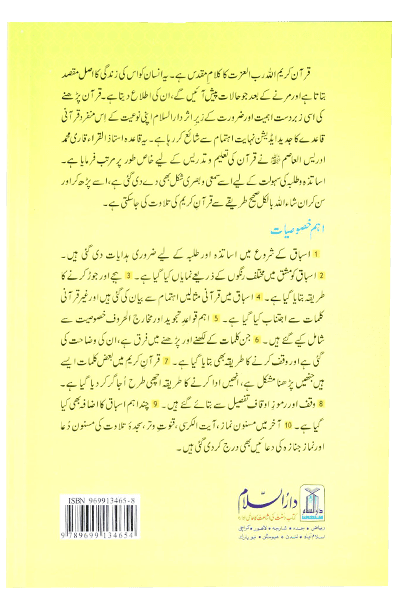 قرآن کریم اللہ رب العزت کا کلام مقدس ہے۔ یہ انسان کو اس کی زندگی کا اصل مقصد
بتاتا ہے اور مرنے کے بعد جو حالات پیش آئیں گے، ان کی اطلاع دیتا ہے۔ قرآن پڑھنے
کی اسی زبردست اہمیت اور ضرورت کے زیر اثر دارالسلام اپنی نوعیت کے اِس منفرد قرآنی
قاعدے کا جدید ایڈیشن نہایت اہتمام سے شائع کر رہا ہے۔ یہ قاعدہ استاذ القراء قاری محمد
ادریس العاصم نے قرآن کی تعلیم و تدریس کے لیے خاص طور پر مرتب فرمایا ہے۔
اساتذہ و طلبہ کی سہولت کے لیے اسے سمعی و بصری شکل بھی دے دی گئی ہے، اسے پڑھ کر اور
سن کر ان شاء اللہ بالکل صحیح طریقے سے قرآن کریم کی تلاوت کی جا سکتی ہے۔
اہم خصوصیات
1 اسباق کے شروع میں اساتذہ اور طلبہ کے لیے ضروری ہدایات دی گئی ہیں۔
2 اسباق کو مشق میں مختلف رنگوں کے ذریعے نمایاں کیا گیا ہے۔ 3 ہجے اور جوڑ کرنے کا
طریقہ بتایا گیا ہے۔ 4 اسباق میں قرآنی مثالیں اہتمام سے بیان کی گئی ہیں اور غیر قرآنی
کلمات سے اجتناب کیا گیا ہے۔ 5 اہم قواعد تجوید اور مخارج الحروف خصوصیت سے
شامل کیے گئے ہیں۔ 6 جن کلمات کے لکھنے اور پڑھنے میں فرق ہے، ان کی وضاحت کی
گئی ہے اور وقف کرنے کا طریقہ بھی بتایا گیا ہے۔ 7 قرآن کریم میں بعض کلمات ایسے
ہیں جنھیں پڑھنا مشکل ہے، انھیں ادا کرنے کا طریقہ اچھی طرح اُجاگر کر دیا گیا ہے۔
8 وقف اور رموز اوقاف تفصیل سے بتائے گئے ہیں۔ 9 چند اہم اسباق کا اضافہ بھی کیا
گیا ہے۔ 10 آخر میں مسنون نماز، آیت الکرسی، قنوت وتر، سجدۂ تلاوت کی مسنون دُعا
اور نماز جنازہ کی دعائیں بھی درج کر دی گئی ہیں۔
ISBN 969913465-8
9 789699 134654
دارالسلام
ریاض • جدہ • شارجہ • لاہور • کراچی
اسلام آباد • لندن • ہیوسٹن • نیو یارک